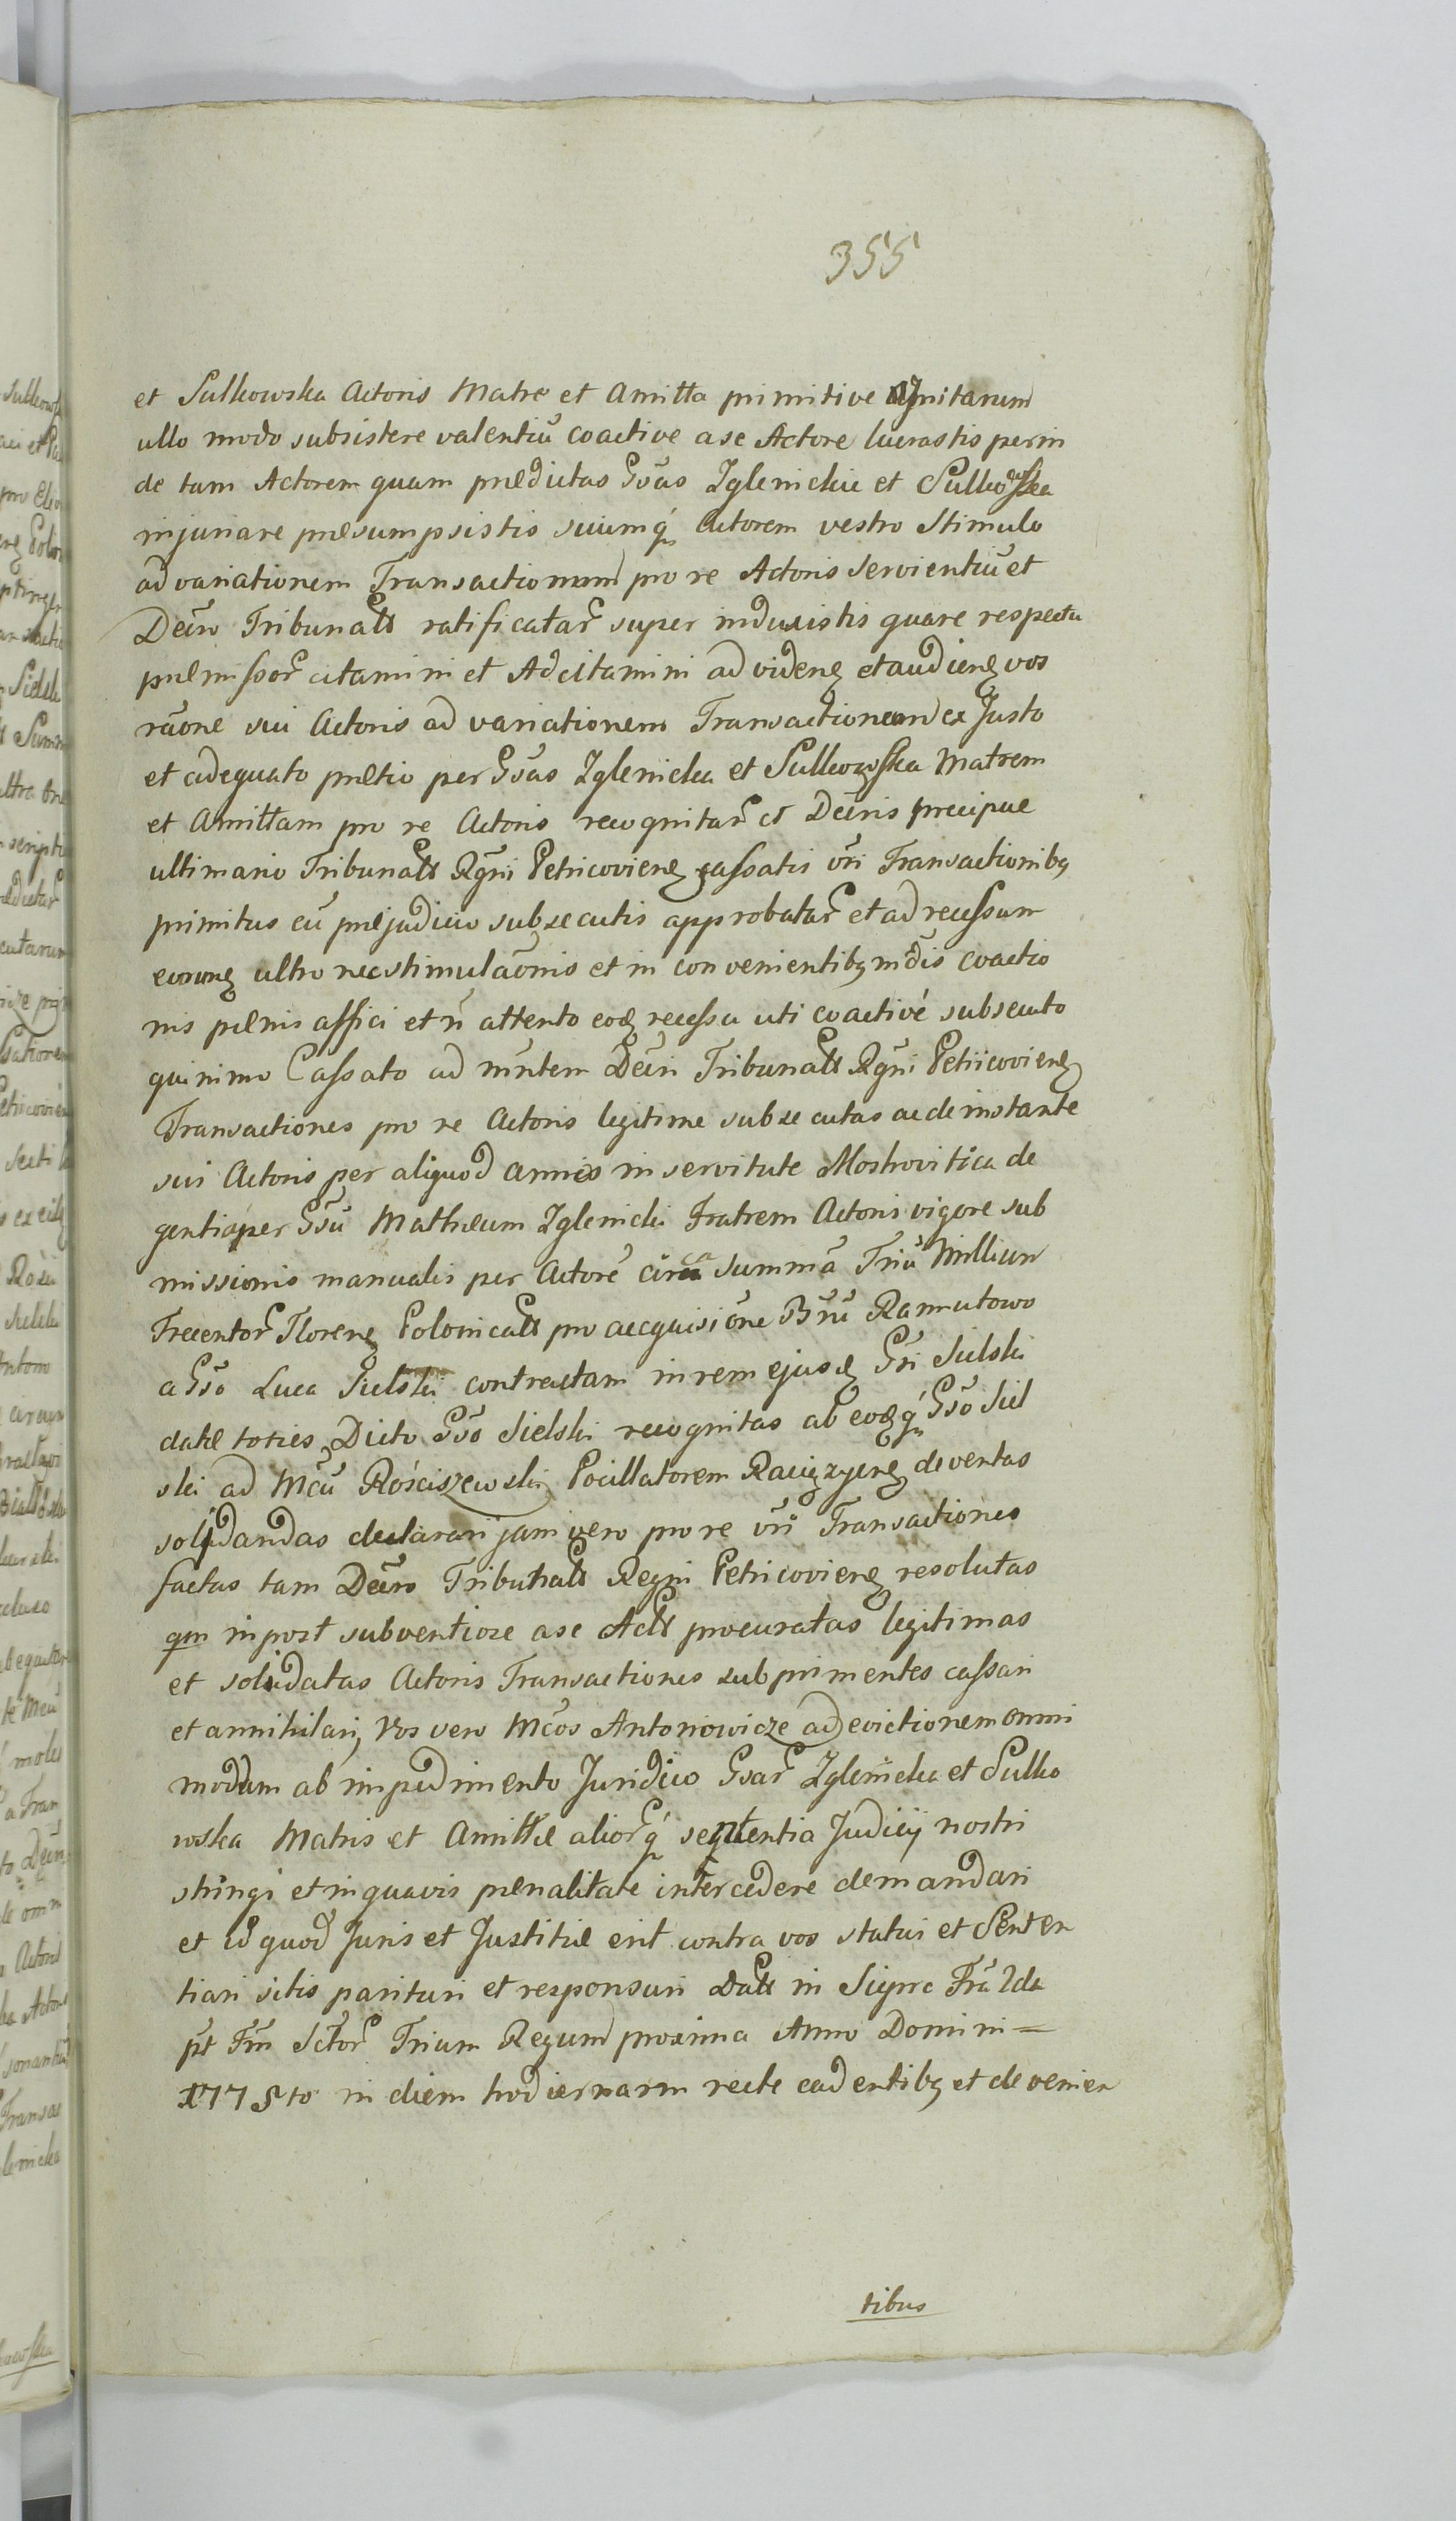 355
et Sulkowska Actoris Matre et Amitta primitive
ullo modo subsistere valentiũ coactive a se Actore lucrastis perin
de tam Actorem quam prædictas Gsãs Zglenickie et Sulkowska
injuriare præsumpsistis suumq́ Actorem vestro Stimulo
ad variationem Transactionum pro re Actoris servientiũ et
Decro Tribunalis ratificatar super induxistis quare respectu
præmissor citamini et Adcitamini ad videne et audiene vos
raõne sui Actoris ad variationem Transactionum ex Justo
et adequato prætio per Gsãs Zglenicka et Sulkowska Matrem
et Amittam pro re Actoris recognitar et Decris præcipue
ultimario Tribunalis Rgni Petricoviene cassatis vri Transactionibq
primitus cũ præjudicio subsecutis approbatar et ad recessum
eorune ultro nec stimulaõnis et in convenientibq mõdis coactio
nis pænis affici et ñ attento eode recessu uti coactivé subsecuto
quinimo Cassato ad mntem Decri Tribunalis Rgni Petricoviene
Transactiones pro re Actoris legitime subsecutas ac de instante
sui Actoris per aliquod annis in servitute Moskovitica de
gentis per Gsũ Mathæum Zglenicki Fratrem Actoris vigore sub
missionis manualis per Actorẽ circa summã Triũ Millium
Trecentor Florene Polonicalis pro acquisiõne Bnũ Ramutowo
a Gso Luca Sielski contractam in rem ejusde Gsi Sielski
datæ toties Dicto Gso Sielski recognitas ab eodeq́ Gso Siel
ski ad Mcũ Rościszewski Pocillatorem Raciązyene deventas
solidandas declarari jam vero pro re vri Transactiones
factas tam Decro Tribunalis Regni Petricoviene resolutas
qm inpost subventiose a se Actis procuratas legitimas
et solidatas Actoris Transactiones subprimentes cassari
et annihilari, Vos vero Mcos Antonowicze ad evictionem omni
modam ab impedimento Juridico Gsar Zglenicka et Sulko
wska Matris et Amittæ aliorq́ sententia Judicij nostri
stringi et in quavis pænalitate intercedere demandari
et id quod Juris et Justitiæ erit contra vos statui et Senten
tiari sitis parituri et responsuri Datt in Sierpc Fria 2da
pt Fm Sctor Trium Regum proxima Anno Domini =
1775to in diem hodiernam recte cadentibq et devenien
tibus